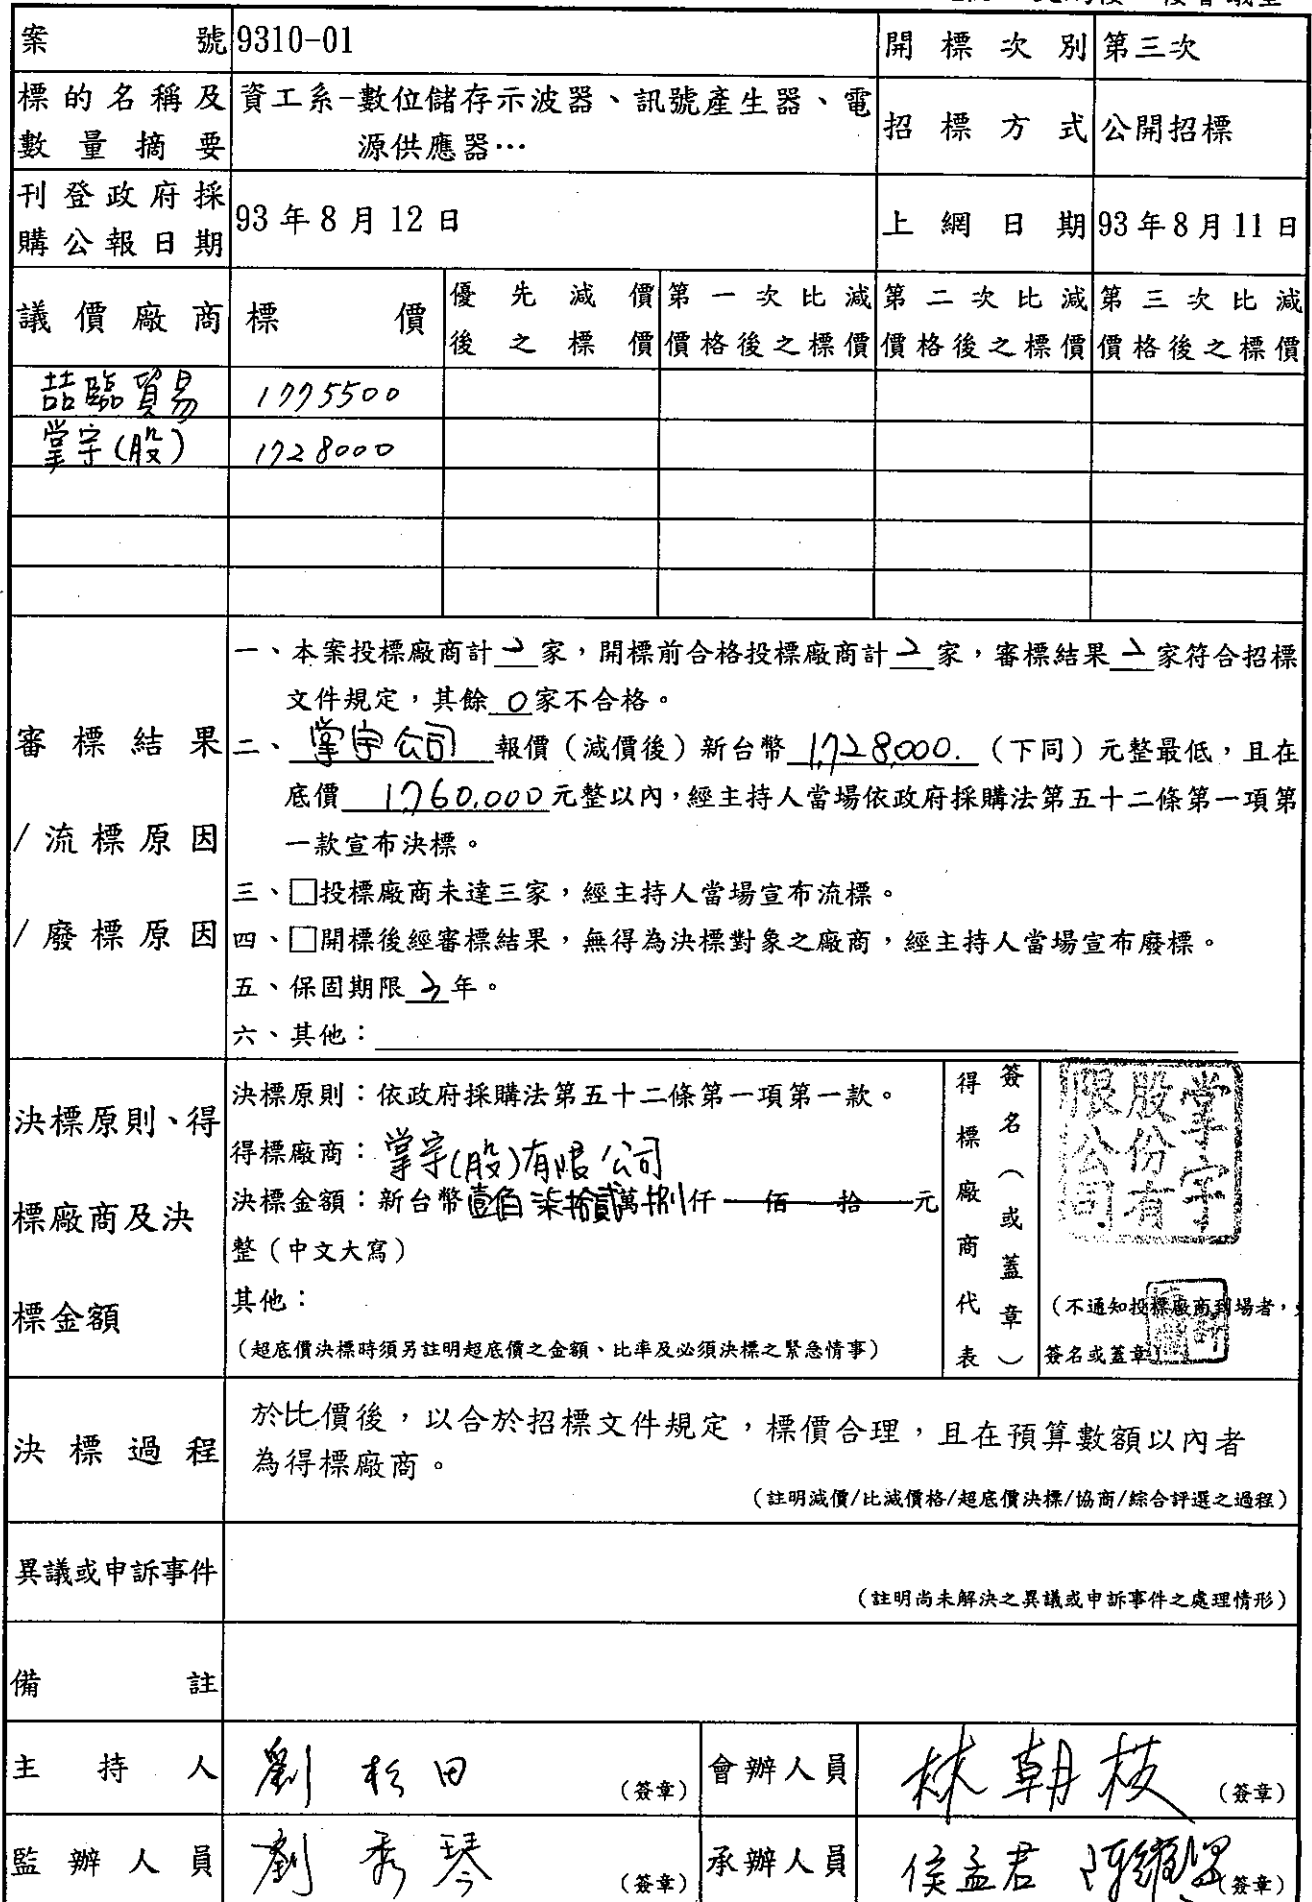 案號 9310-01 開標次別 第三次
標的名稱及 資工系-數位儲存示波器、訊號產生器、電
數量摘要 源供應器… 招標方式 公開招標
刊登政府採
購公報日期 93年8月12日 上網日期 93年8月11日
議價廠商 標價 優先減價 第一次比減 第二次比減 第三次比減
後之標價 價格後之標價 價格後之標價 價格後之標價
喆臨貿易 1775500
掌宇(股) 1728000
審標結果
/流標原因
/廢標原因
一、本案投標廠商計2家,開標前合格投標廠商計2家,審標結果2家符合招標
文件規定,其餘0家不合格。
二、掌宇公司報價(減價後)新台幣1,728,000.(下同)元整最低,且在
底價1,760,000元整以內,經主持人當場依政府採購法第五十二條第一項第
一款宣布決標。
三、□投標廠商未達三家,經主持人當場宣布流標。
四、□開標後經審標結果,無得為決標對象之廠商,經主持人當場宣布廢標。
五、保固期限年。
六、其他:
決標原則、得
標廠商及決
標金額
決標原則:依政府採購法第五十二條第一項第一款。
得標廠商:掌宇(股)有限公司
決標金額:新台幣壹佰柒拾貳萬捌仟佰拾元
整(中文大寫)
其他:
(超底價決標時須另註明超底價之金額、比率及必須決標之緊急情事)
得標廠商代表
簽名(或蓋章)
掌宇
股份有
限公司
(不通知投標廠商到場者,
簽名或蓋章
決標過程
於比價後,以合於招標文件規定,標價合理,且在預算數額以內者
為得標廠商。
(註明減價/比減價格/超底價決標/協商/綜合評選之過程)
異議或申訴事件
(註明尚未解決之異議或申訴事件之處理情形)
備註
主持人 劉杉田 (簽章) 會辦人員 林朝枝 (簽章)
監辦人員 劉秀琴 (簽章) 承辦人員 侯孟君 (簽章)